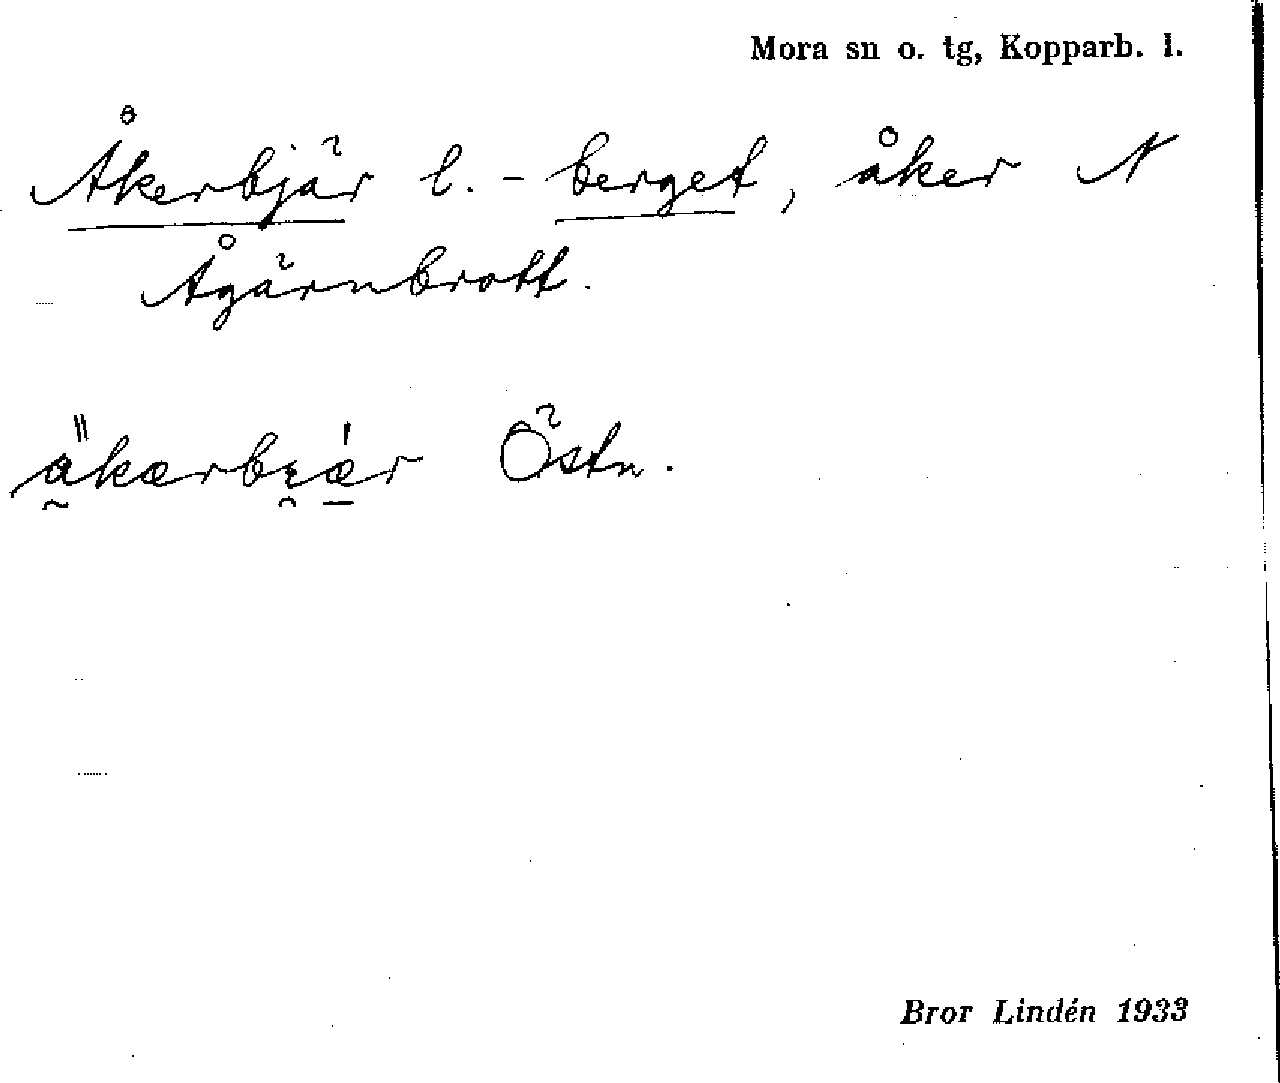 Mora sn o. tg, Kopparb. l.
Åkerbjär l. -berget, åker N
Ågärnbrott.
Östn.
Bror Lindén 1933